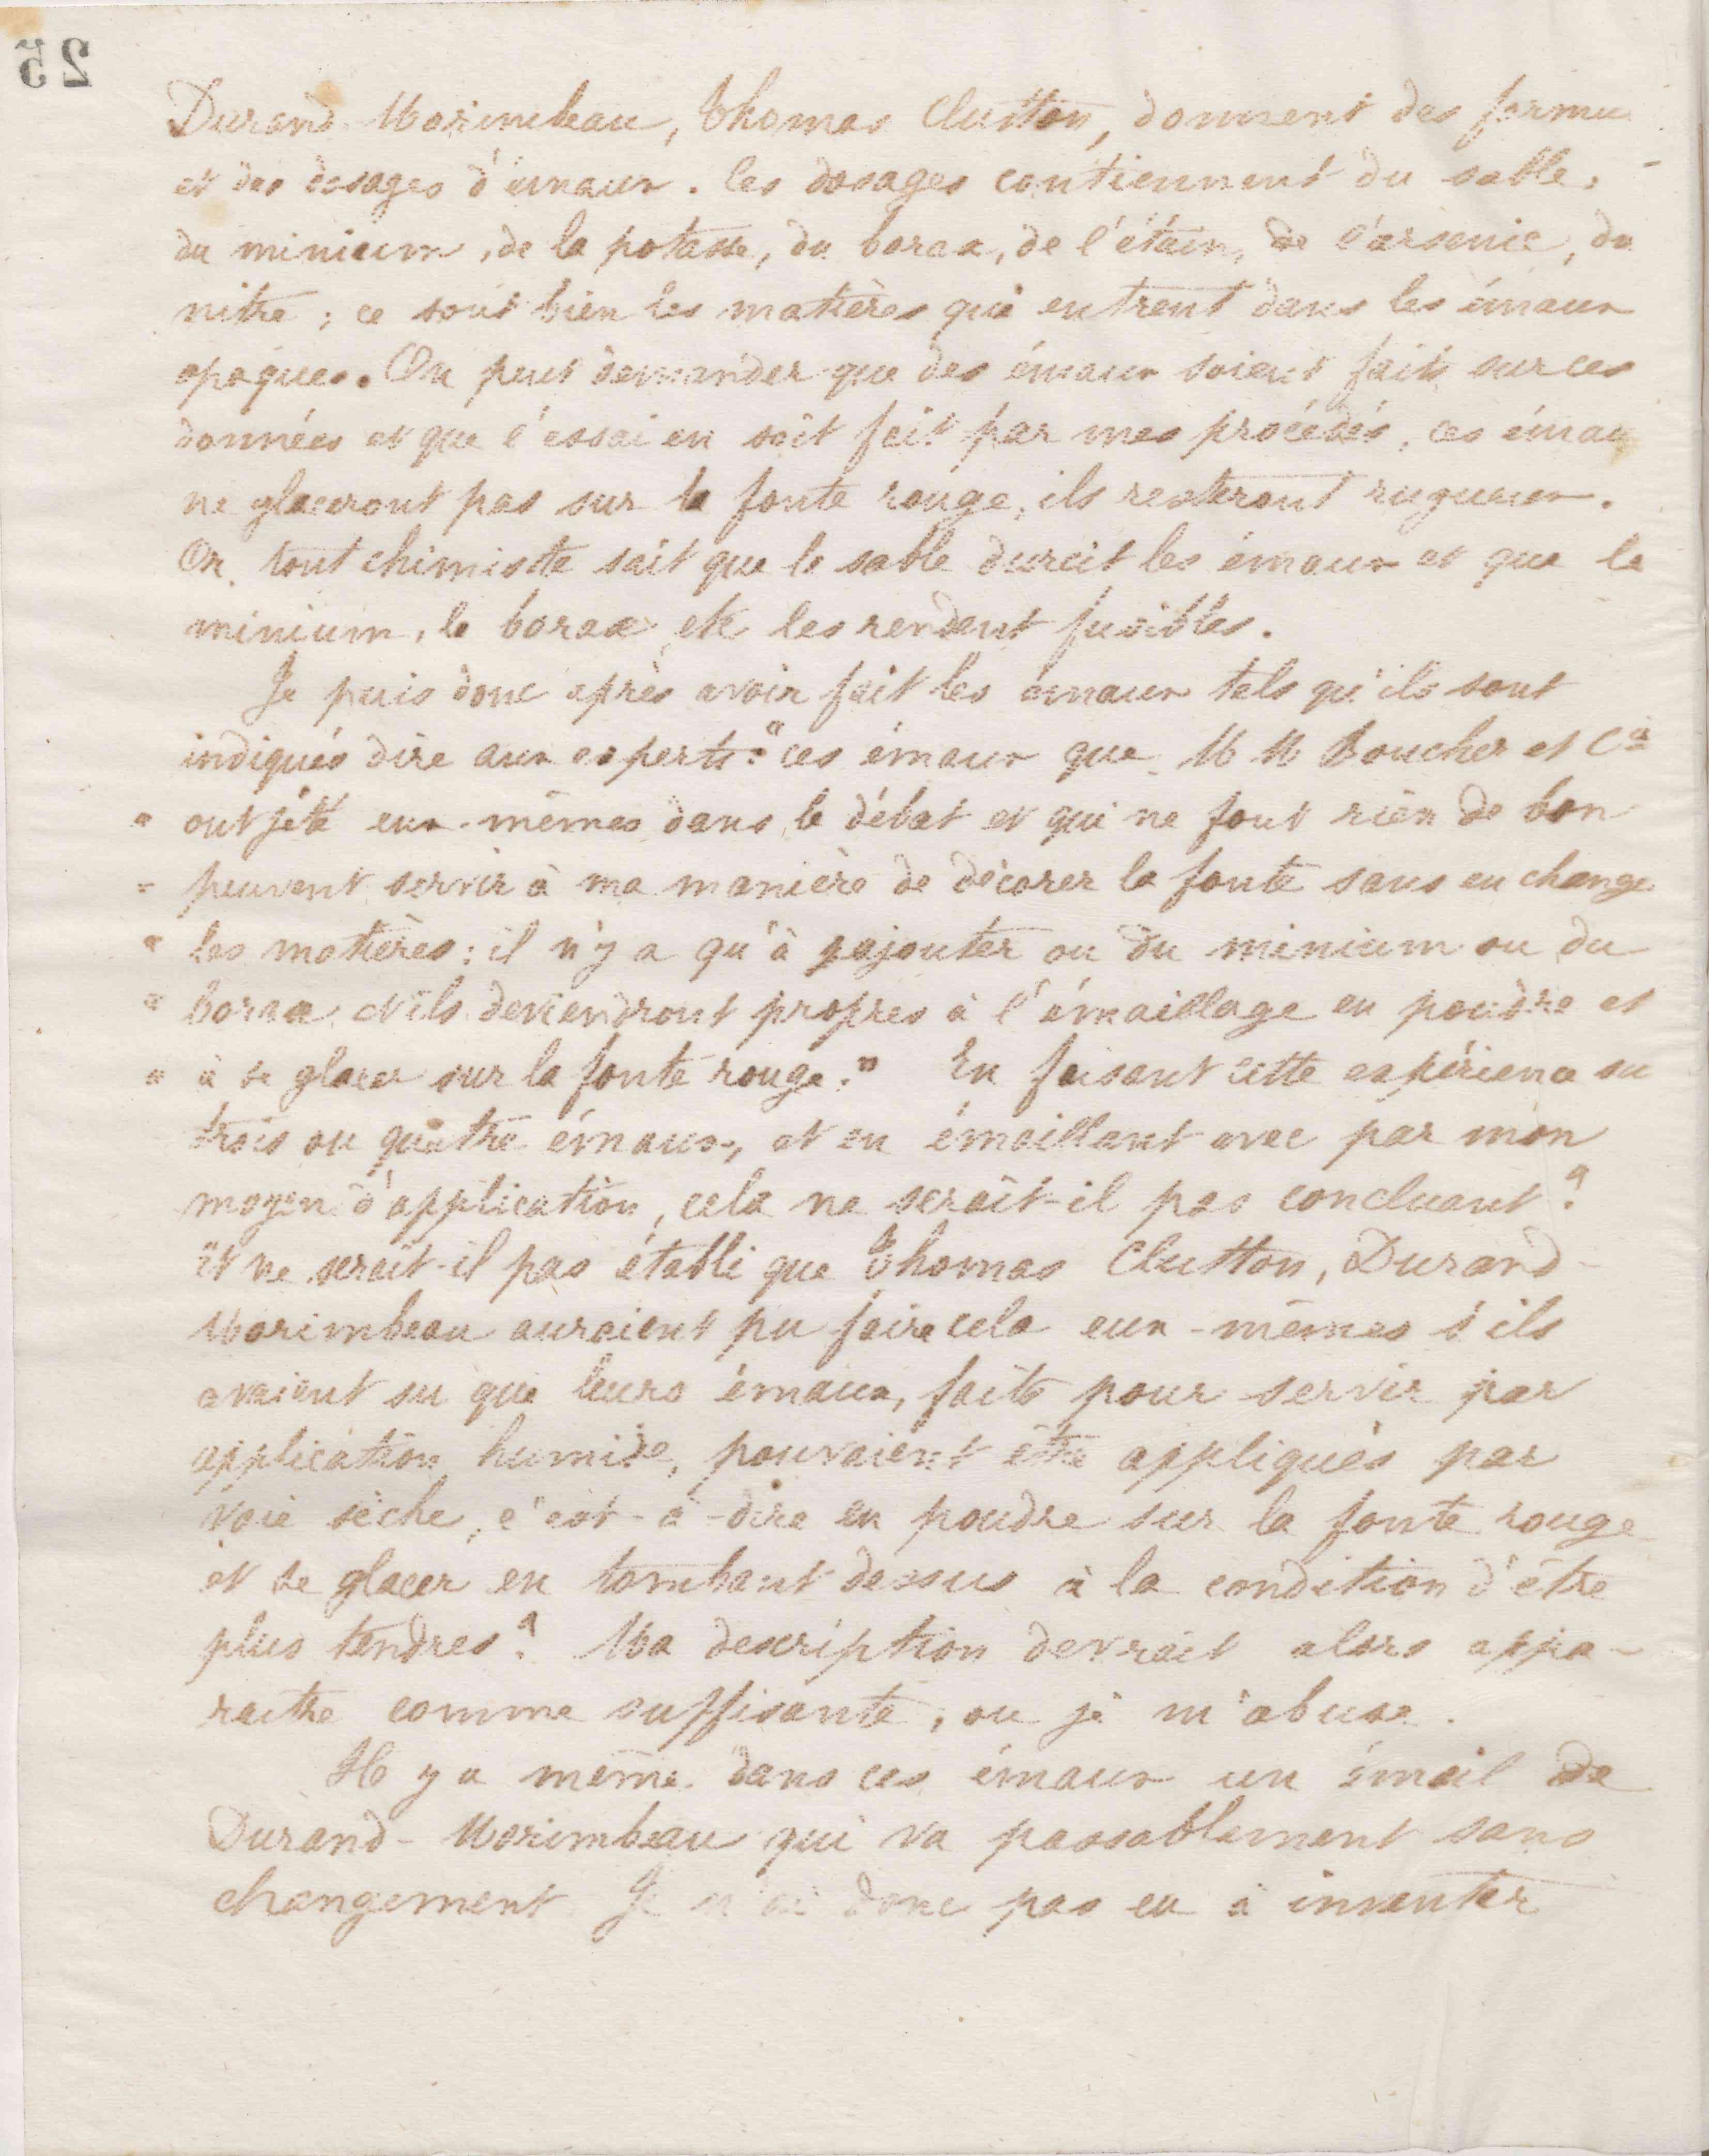 25
Durand Morimbeau, Thomas Clutton, donnent des formu
et des dosages d'émaux. les dosages contiennent du sable,
du minium, de la potasse, du borax, de l'étain, de l'arsenic, du
nitre ; ce sont bien les matières qui entrent dans les émaux
opaques. On peut demander que des émaux soient faits sur ces
données et que l'essai en soit fait par mes procédés, ces émau
ne glaceront pas sur la fonte rouge, ils resteront rugueux.
Or, tout chimiste sait que le sable durcit les émaux et que le
minium, le borax etc les rendent fusibles.
Je puis donc après avoir fait les émaux tels qu'ils sont
indiqués dire aux experts : " ces émaux que M M Boucher et Cie
" ont jeté eux-mêmes dans le débat et qui ne font rien de bon
" peuvent servir à ma manière de décorer la fonte sans en change
" les matières : il n'y a qu'à y ajouter ou du minium ou du
" borax et ils deviendront propres à l'émaillage en poudre et
" à se glacer sur la fonte rouge. " En faisant cette expérience su
trois ou quatre émaux, et en émaillant avec par mon
moyen d'application, cela ne serait-il pas concluant ?
et ne serait-il pas établi que Thomas Clutton, Durand-
Morimbeau auraient pu faire cela eux-mêmes s'ils
avaient su que leurs émaux, faits pour servir par
application humide, pouvaient être appliqués par
voie sèche, c'est-à-dire en poudre sur la fonte rouge
et se glacer en tombant dessus à la condition d'être
plus tendres ? Ma description devrait alors appa-
raitre comme suffisante, ou je m'abuse.
Il y a même dans ces émaux un émail de
Durand-Morimbeau qui va passablement sans
changement Je n'ai donc pas eu à inventer